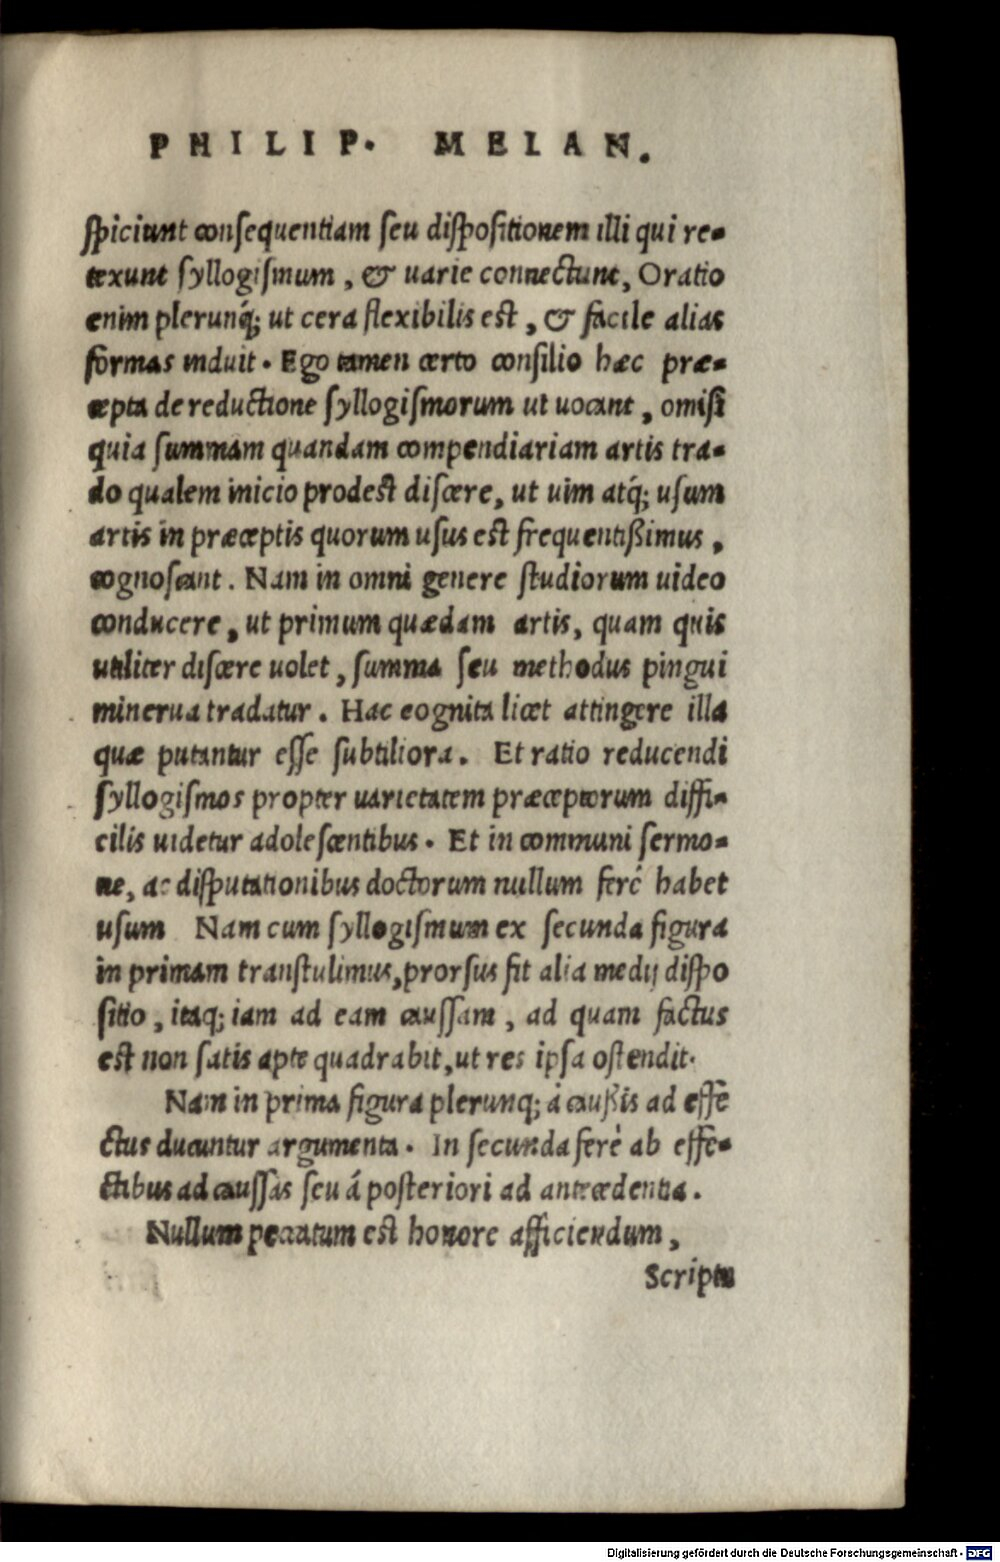 PHILIP. MELAN.
ſpiciunt conſequentiam ſeu diſpoſitionem illi qui re-
texunt ſyllogiſmum, & uarie connectunt, Oratio
enim plerunq́; ut cera flexibilis eſt, & facile alias
formas induit. Ego tamen certo conſilio hæc præ-
cepta de reductione ſyllogiſmorum ut uocant, omiſi
quia ſummam quandam compendiariam artis tra-
do qualem inicio prodeſt diſcere, ut uim atq́; uſum
artis in præceptis quorum uſus eſt frequentißimus,
cognoſcant. Nam in omni genere ſtudiorum uideo
conducere, ut primum quædam artis, quam quis
utiliter diſcere uolet, ſumma ſeu methodus pingui
minerua tradatur. Hac cognita licet attingere illa
quæ putantur eſſe ſubtiliora. Et ratio reducendi
ſyllogiſmos propter uarietatem præceptorum diffi-
cilis uidetur adoleſcentibus. Et in communi ſermo-
ne, ac diſputationibus doctorum nullum ferè habet
uſum Nam cum ſyllogiſmum ex ſecunda figura
in primam tranſtulimus, prorſus fit alia medij diſpo
ſitio, itaq; iam ad eam cauſſam, ad quam factus
eſt non ſatis apte quadrabit, ut res ipſa oſtendit.
Nam in prima figura plerunq; à caußis ad effe
ctus ducuntur argumenta. In ſecunda ferè ab effe-
ctibus ad cauſſas ſeu á poſteriori ad antecedentia.
Nullum peccatum eſt honore afficiendum,
Scripta
Digitalisierung gefördert durch die Deutsche Forschungsgemeinschaft - DFG